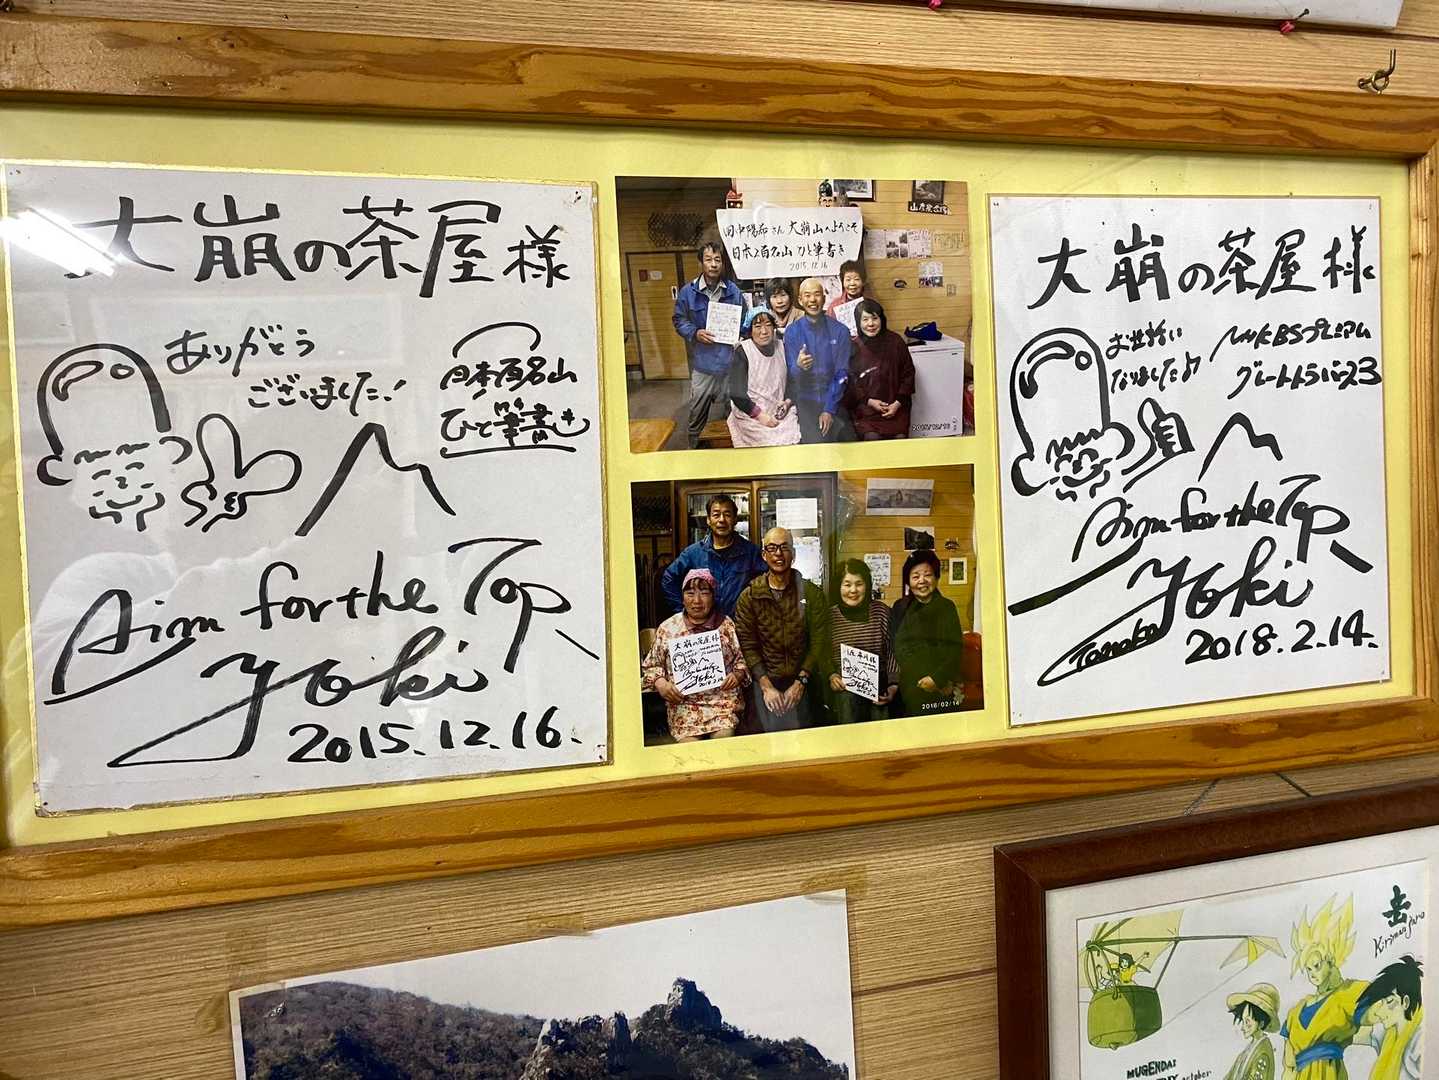 大崩の茶屋様
ありがとう
ございました!
日本百名山
ひと筆書き
Aim for the Top
Yoki
2015.12.16.
田中陽希さん 大崩山へようこそ
日本2百名山 ひと筆書き
2015.12.16
2015/12/16
大崩の茶屋様
2018/02/14
大崩の茶屋様
お世話に
なりました!!
NHK BSプレミアム
グレートトラバース3
Aim for the Top
Yoki
Tanaka
2018.2.14.
MUGENDAI